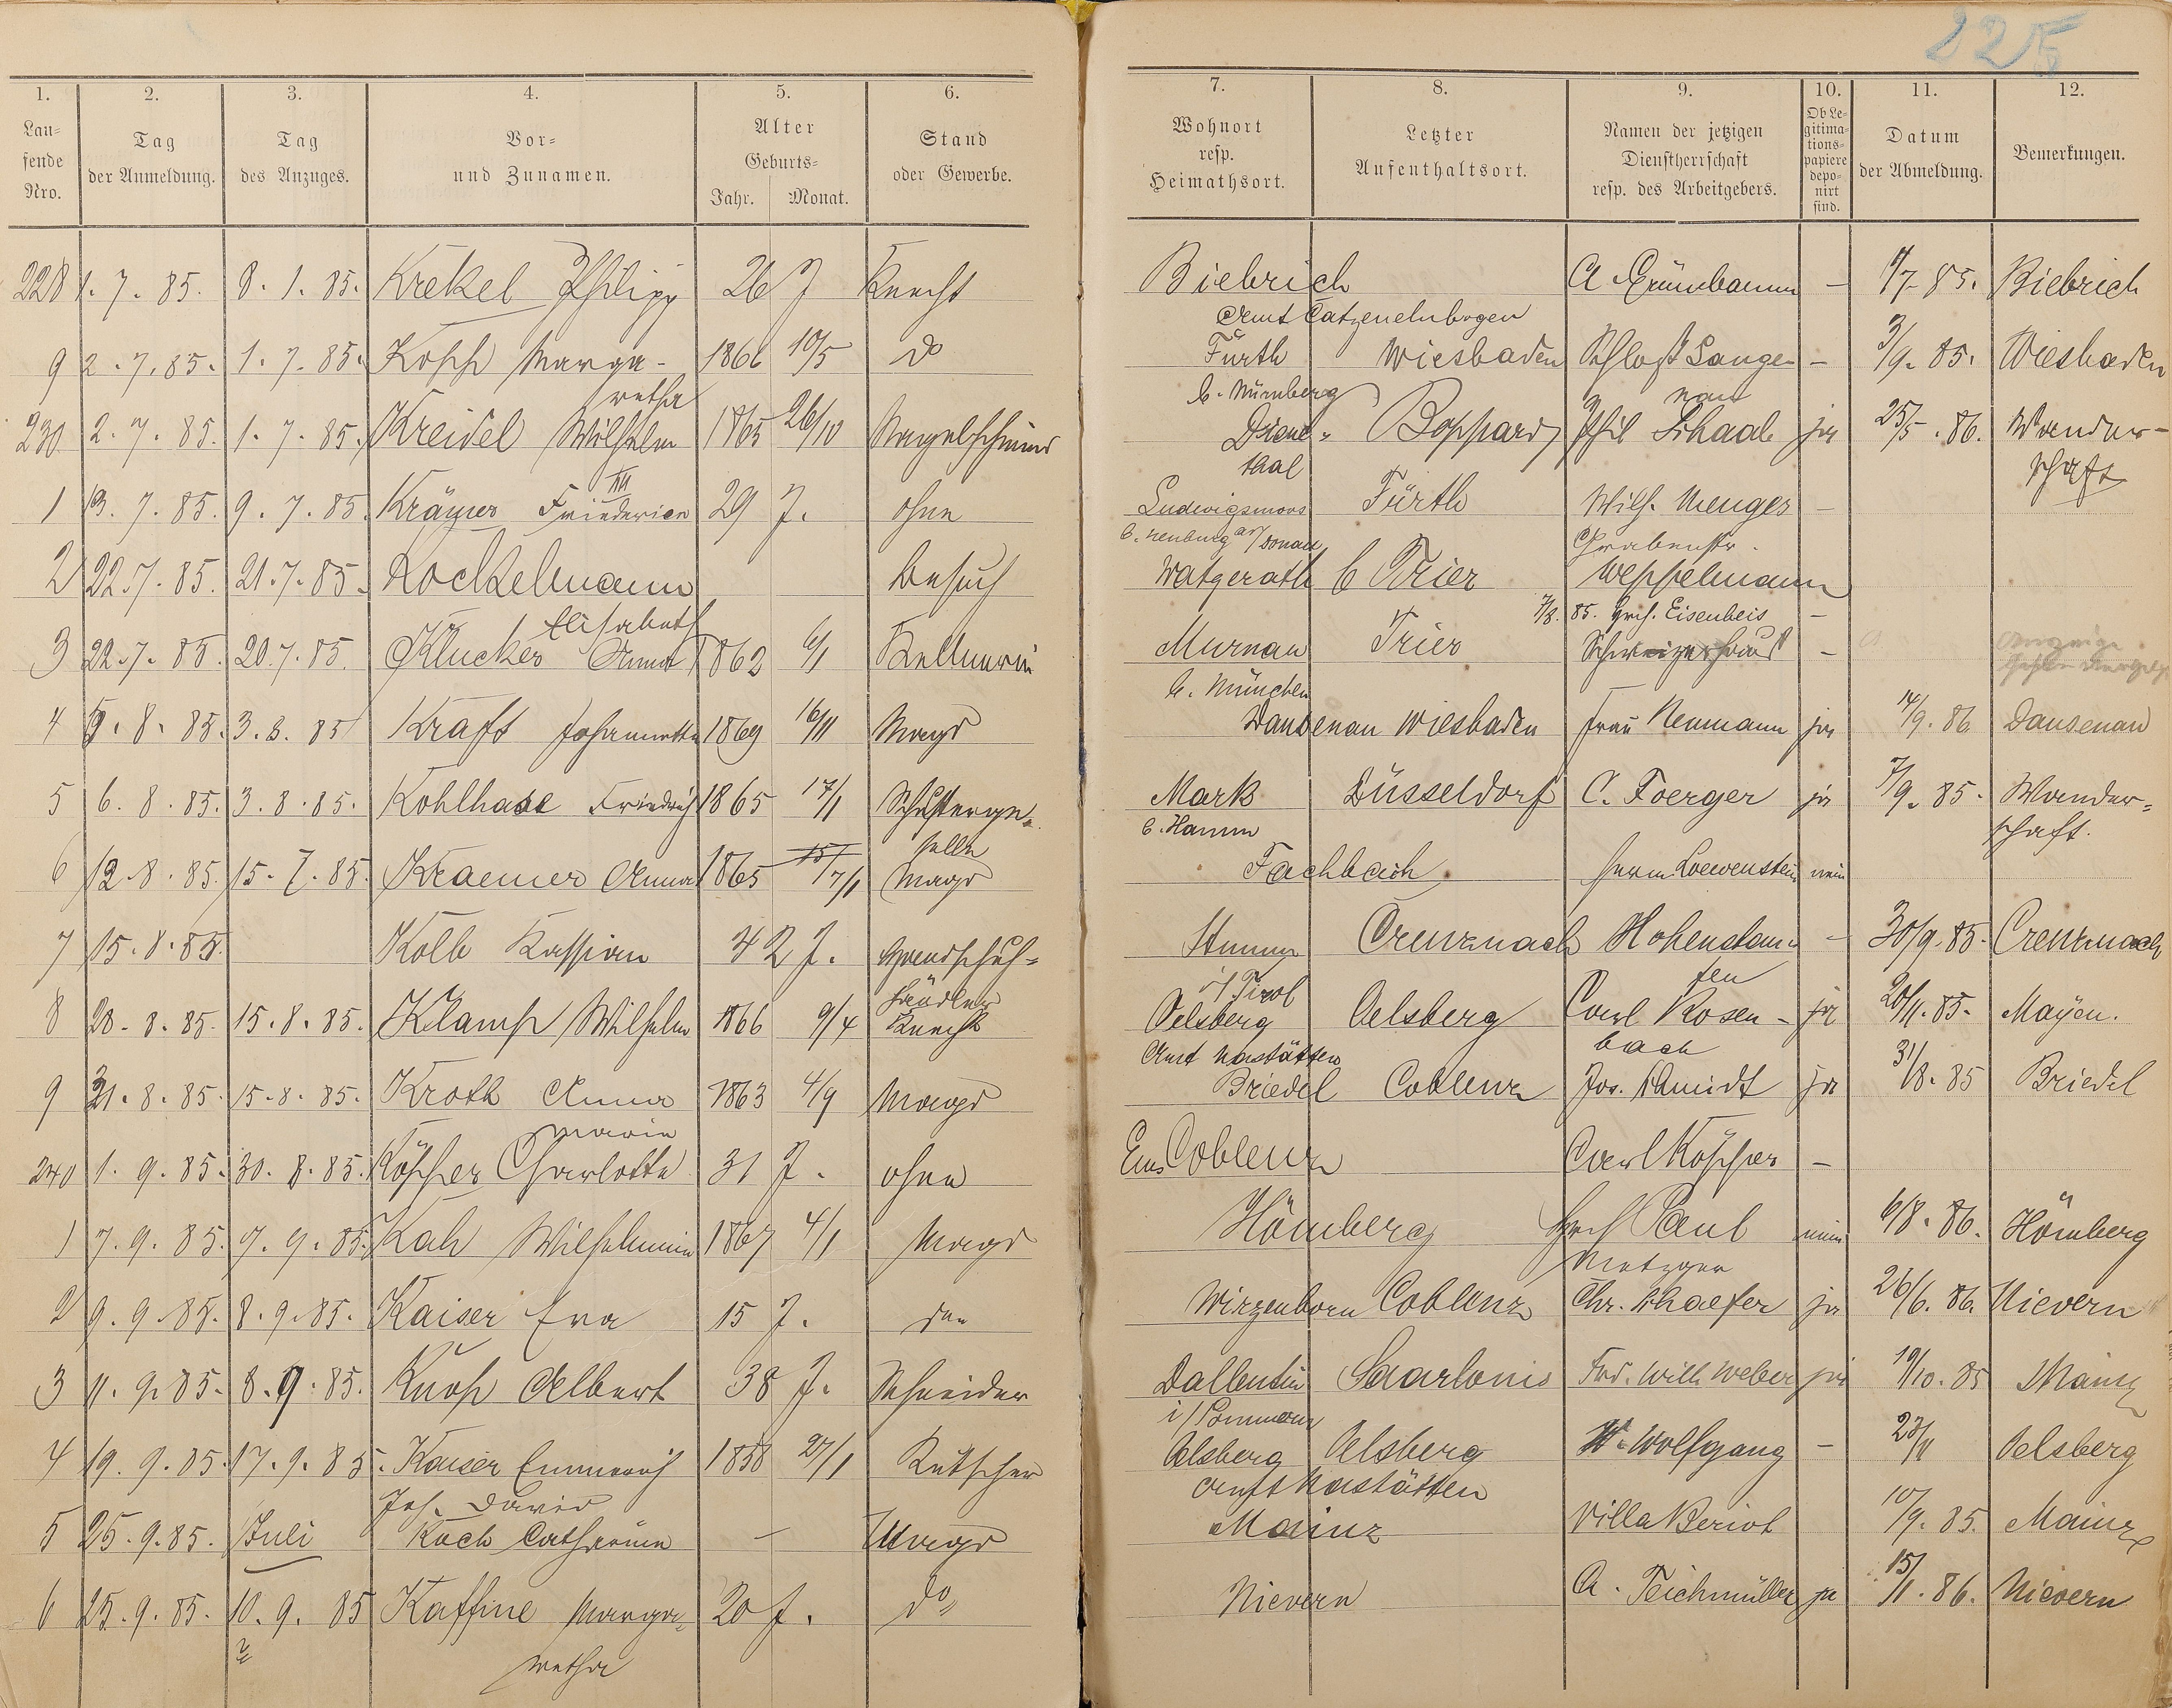 225
1. 2. 3. 4. 5. 6. 7. 8. 9. 10. 11. 12.
Lau=
fende
Nro.
Tag
der Anmeldung.
Tag
des Anzuges.
Vor=
und Zunamen.
Alter
Geburts=
Jahr. Monat.
Stand
oder Gewerbe.
Wohnort
resp.
Heimathsort.
Letzter
Aufenthaltsort.
Namen der jetzigen
Dienstherrschaft
resp. des Arbeitgebers.
Ob Le-
gitima-
tions-
papiere
depo-
nirt
sind.
Datum
der Abmeldung.
Bemerkungen.
228 1. 7. 85. 8. 1. 85. Krekel Philipp 26 J Knecht Biebrich A Grünebaum - 1/7. 85. Biebrich
Amt Catzenelnbogen
9 2. 7. 85. 1. 7. 85. Kopp Marga- 1866 10/5 do Fürth Wiesbaden Schloß Lange- - 3/9. 85. Wiesbaden
retha b. Nürnberg nau
230 2. 7. 85. 1. 7. 85. Kreidel Wilhelm 1865 26/10 Nagelschmied Boppard Phil Schaab ja 25/5. 86. Wander-
III thal schaft
1 13. 7. 85. 9. 7. 85. Krämer Friederica 29 J. ohne Ludwigsmoos Fürth Wilh. Menges -
b. Neuburg a/Donau Grabenstr.
2 22. 7. 85. 21. 7. 85. Kockelmann Besuch Watgerath b Trier Weppelmann
Elisabeth 7/8. 85. Hrch. Eisenbeis -
3 22. 7. 85. 20. 7. 85. Klucker Anna 1862 6/1 Kellnerin Murnau Trier Schweizerhaus -
b. München
4 5. 8. 85. 3. 8. 85 Kraft Johannette 1869 16/11 Magd Dausenau Wiesbaden Frau Neumann ja 14/9. 86 Dausenau
5 6. 8. 85. 3. 8. 85. Kohlhase Friedrich 1865 17/1 Schusterge- Mark Düsseldorf C. Foerger ja 7/9. 85. Wander=
selle b. Hamm schaft.
6 12. 8. 85. 15. 7. 85. Kraemer Anna 1865 17/1 Magd Fachbach Herm Loewenstein nein
7 15. 8. 85. Kolb Kassian 42 J. Handschuh= Stumm Creuznach Hohenstau- - 30/9. 85. Creuznach
händler i/Tirol fen
8 28. 8. 85. 15. 8. 85. Klamp Wilhelm 1866 9/4 Knecht Oelsberg Oelsberg Carl Rosen- ja 20/11. 85. Mayen.
Amt Nastätten bach
9 31. 8. 85. 15. 8. 85. Kroth Anna 1863 4/9 Magd Briedel Coblenz Jos. Schmidt ja 31/8. 85 Briedel
Maria
240 1. 9. 85. 30. 8. 85. Köpper Charlotte 31 J. ohne Ems Coblenz Carl Köpper -
1 7. 9. 85. 7. 9. 85. Kah Wilhelmin 1867 4/1 Magd Hömberg Hrch Paul nein 6/8. 86. Hömberg
Metzger
2 9. 9. 85. 8. 9. 85. Kaiser Eva 15 J. Wirzenborn Coblenz Chr. Schaefer ja 26/6. 86. Nievern
3 11. 9. 85. 8. 9. 85. Knop Albert 38 J. Schneider Dallentin Saarlouis Frd. Wilh. Weber ja 19/10. 85 Mainz
i/Pommern
4 19. 9. 85. 17. 9. 85. Kaiser Emmerich 1858 27/1 Kutscher Oelsberg Oelsberg W. Wolfgang - 23/11 Oelsberg
Joh. David Amt Nastätten
5 25. 9. 85. Juli Koch Catharina - Magd Mainz Villa Beriot 10/9. 85. Mainz
6 25. 9. 85. 10. 9. 85 Kaffine Marga- 20 J. do Nievern A. Teichmüller ja 15/11. 86. Nievern
retha